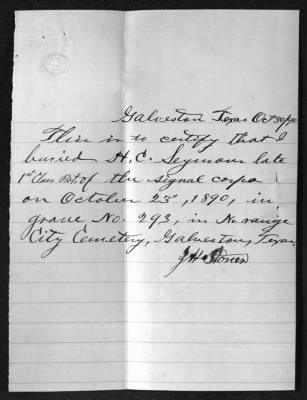 Galveston Texas Oct 30/90
This is to certify that I
buried H. C. Seymour late
1st Class Pvt. of the signal corps
on October 23", 1890, in
grave No. 293, in No range
City Cemetery, Galveston, Texas,
J H